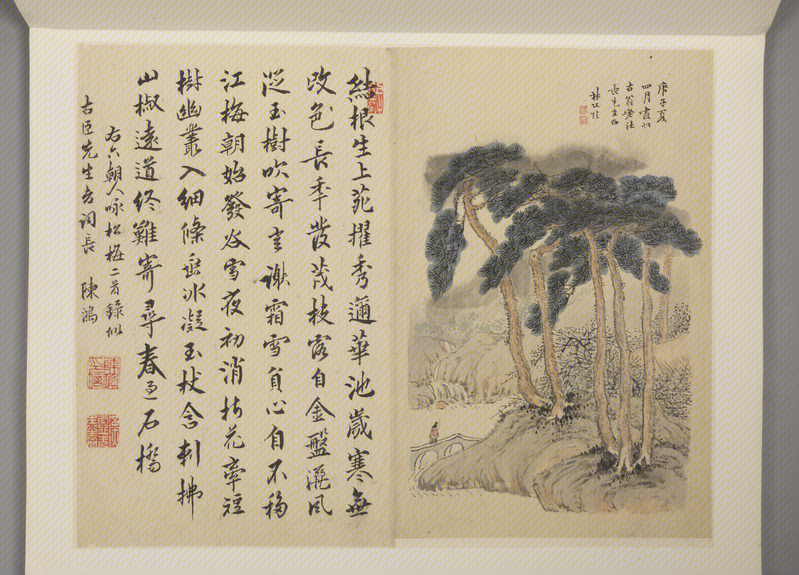 庚子夏
四月畫似
古翁社
長先生正
結根生上苑擢秀邇華池歲寒無
改色長年發茂枝露自金盤灑風
從玉樹吹寄言謝霜雪貞心自不移
江梅朝始發谷雪夜初消折花牽短
樹幽叢入細條垂冰凝玉杖含刺拂
山椒遠道終難寄尋春過石橋
右六朝人咏松梅二首錄似
古臣先生老詞長 陳鴻